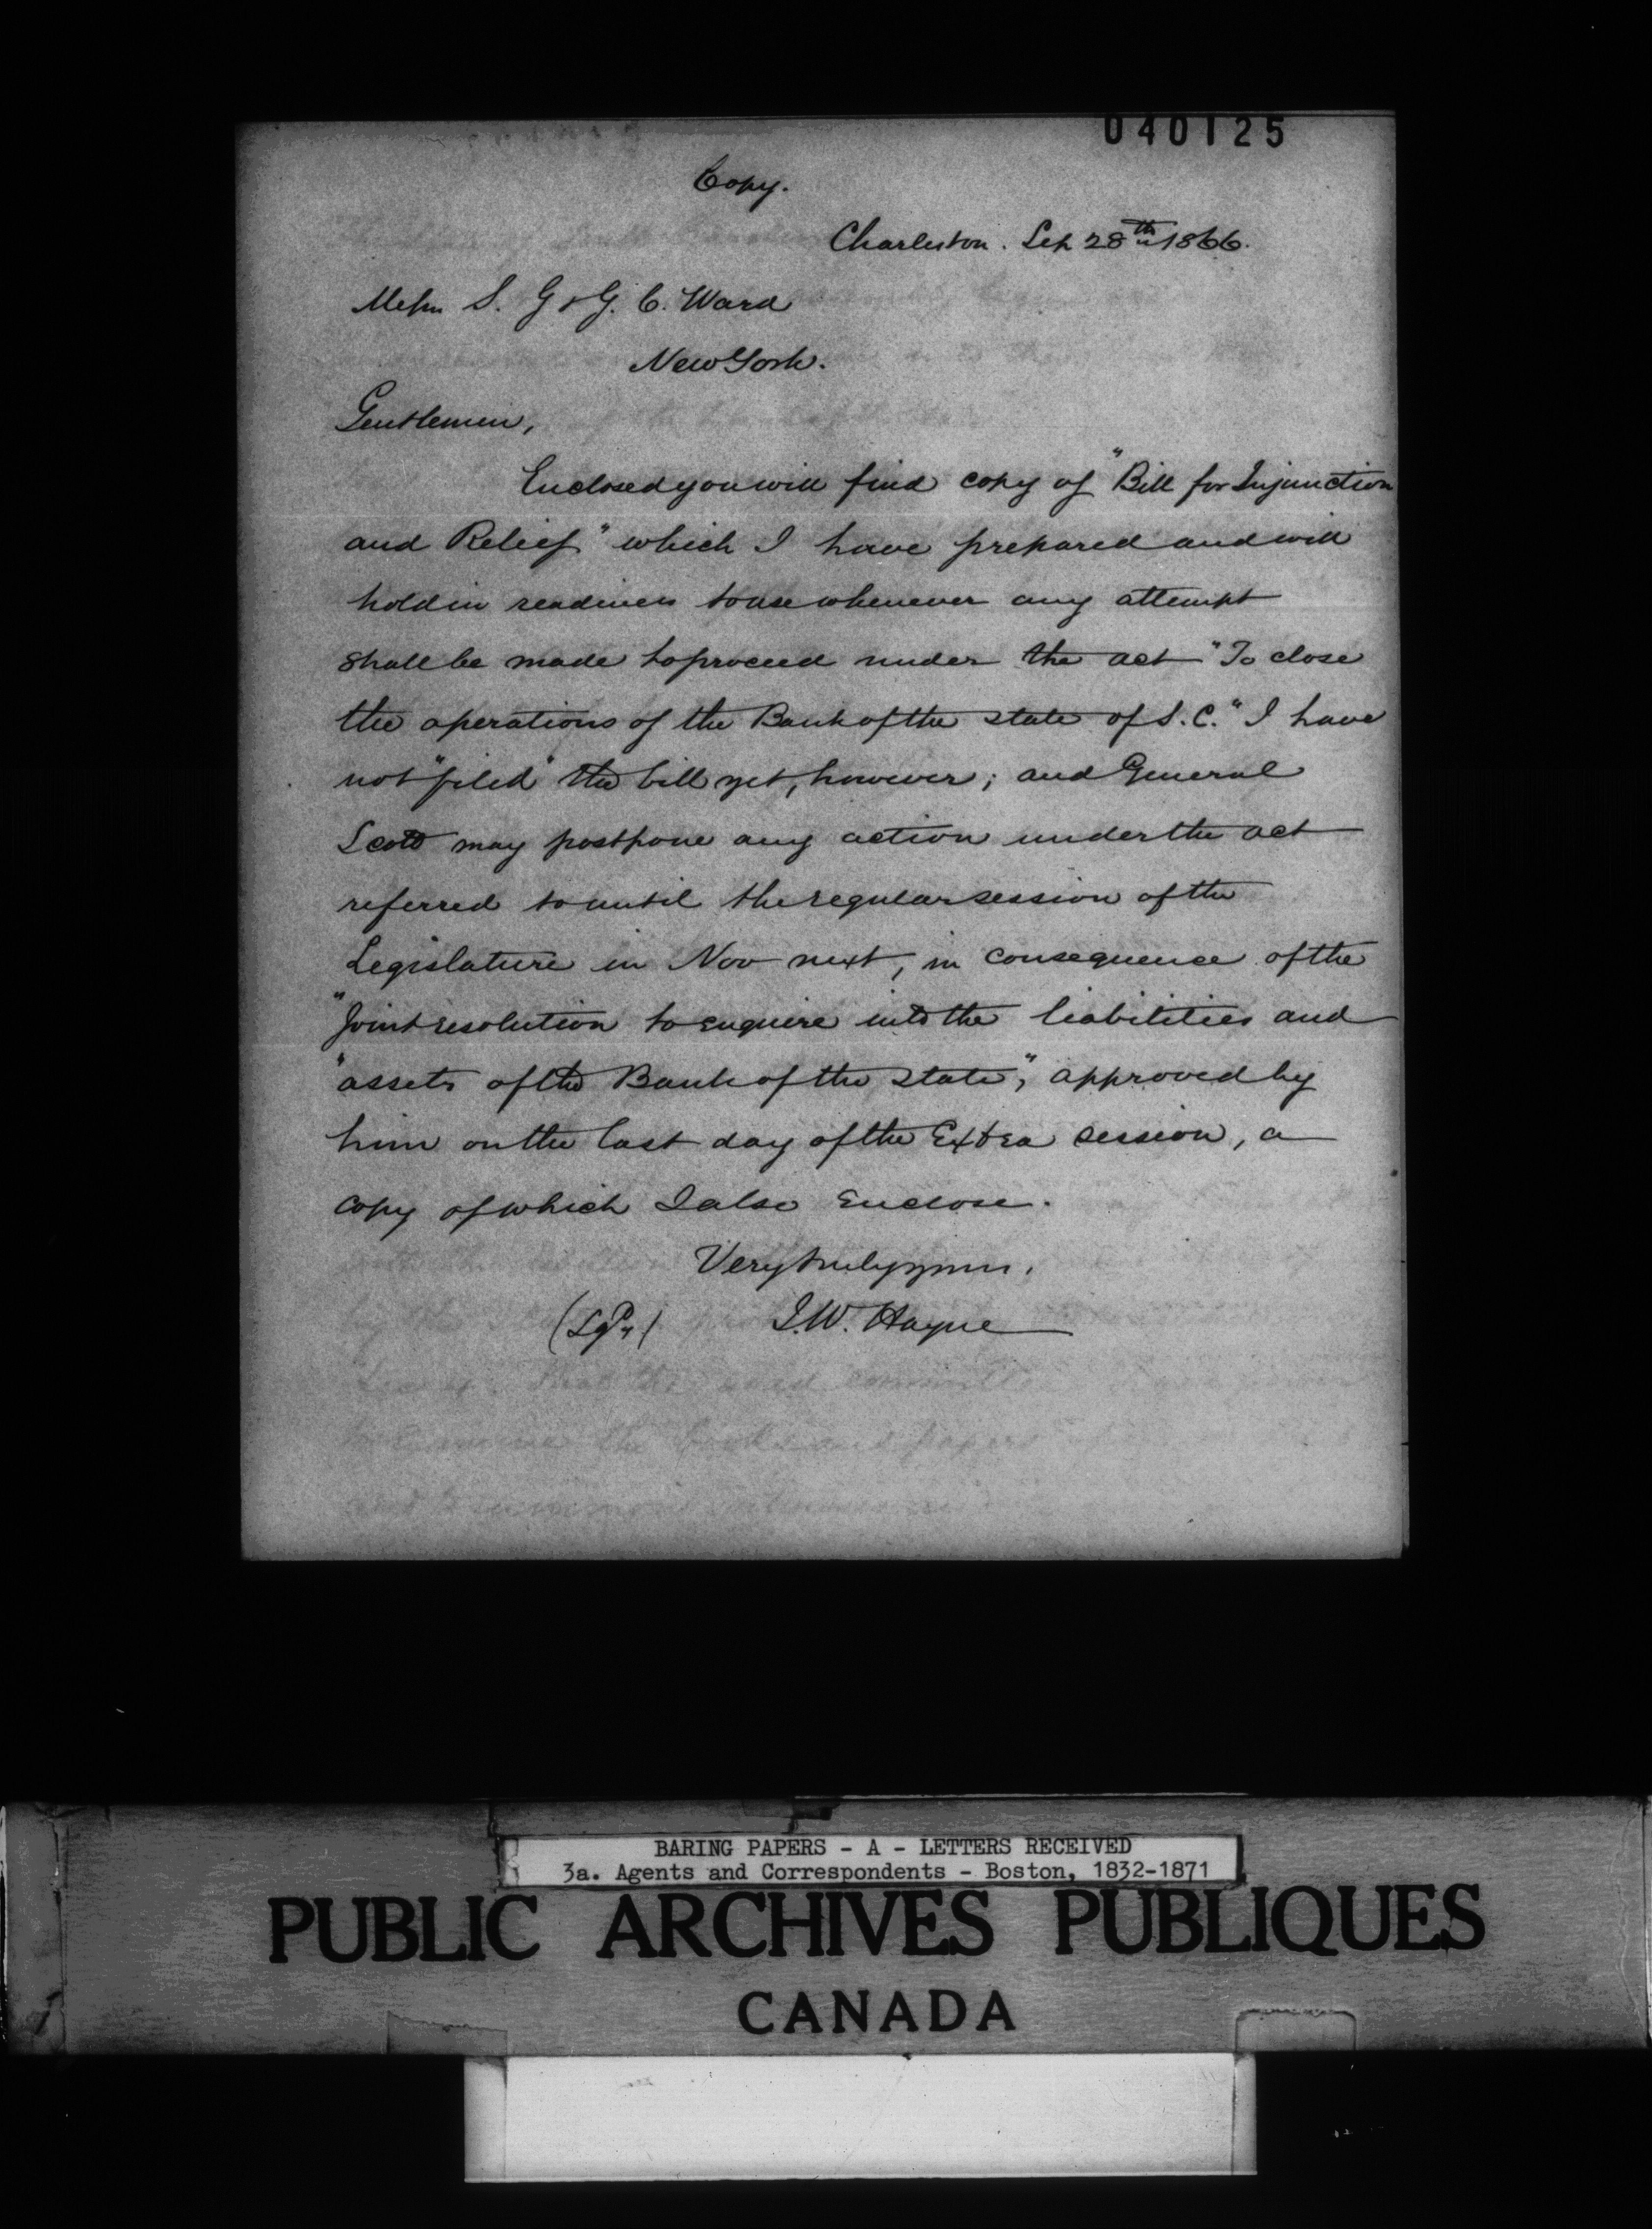 040125
Copy.
Charleston. Sep 28th 1866.
Messrs S. G & G. C. Ward
New York.
Gentlemen,
Enclosed you will find copy of "Bill for Injunction
and Relief" which I have prepared and will
hold in readiness to use whenever any attempt
shall be made to proceed under the act "To close
the operations of the Bank of the state of S.C." I have
not "filed" the bill yet, however; and General
Scott may postpone any action under the act
referred to until the regular session of the
Legislature in Nov next, in consequence of the
"Joint resolution to enquire into the liabilities and
"assets of the Bank of the State", approved by
him on the last day of the Extra session, a
copy of which I also Enclose.
Very truly yours.
I. W. Hayne
BARING PAPERS - A - LETTERS RECEIVED
3a. Agents and Correspondents - Boston, 1832-1871
PUBLIC ARCHIVES PUBLIQUES
CANADA